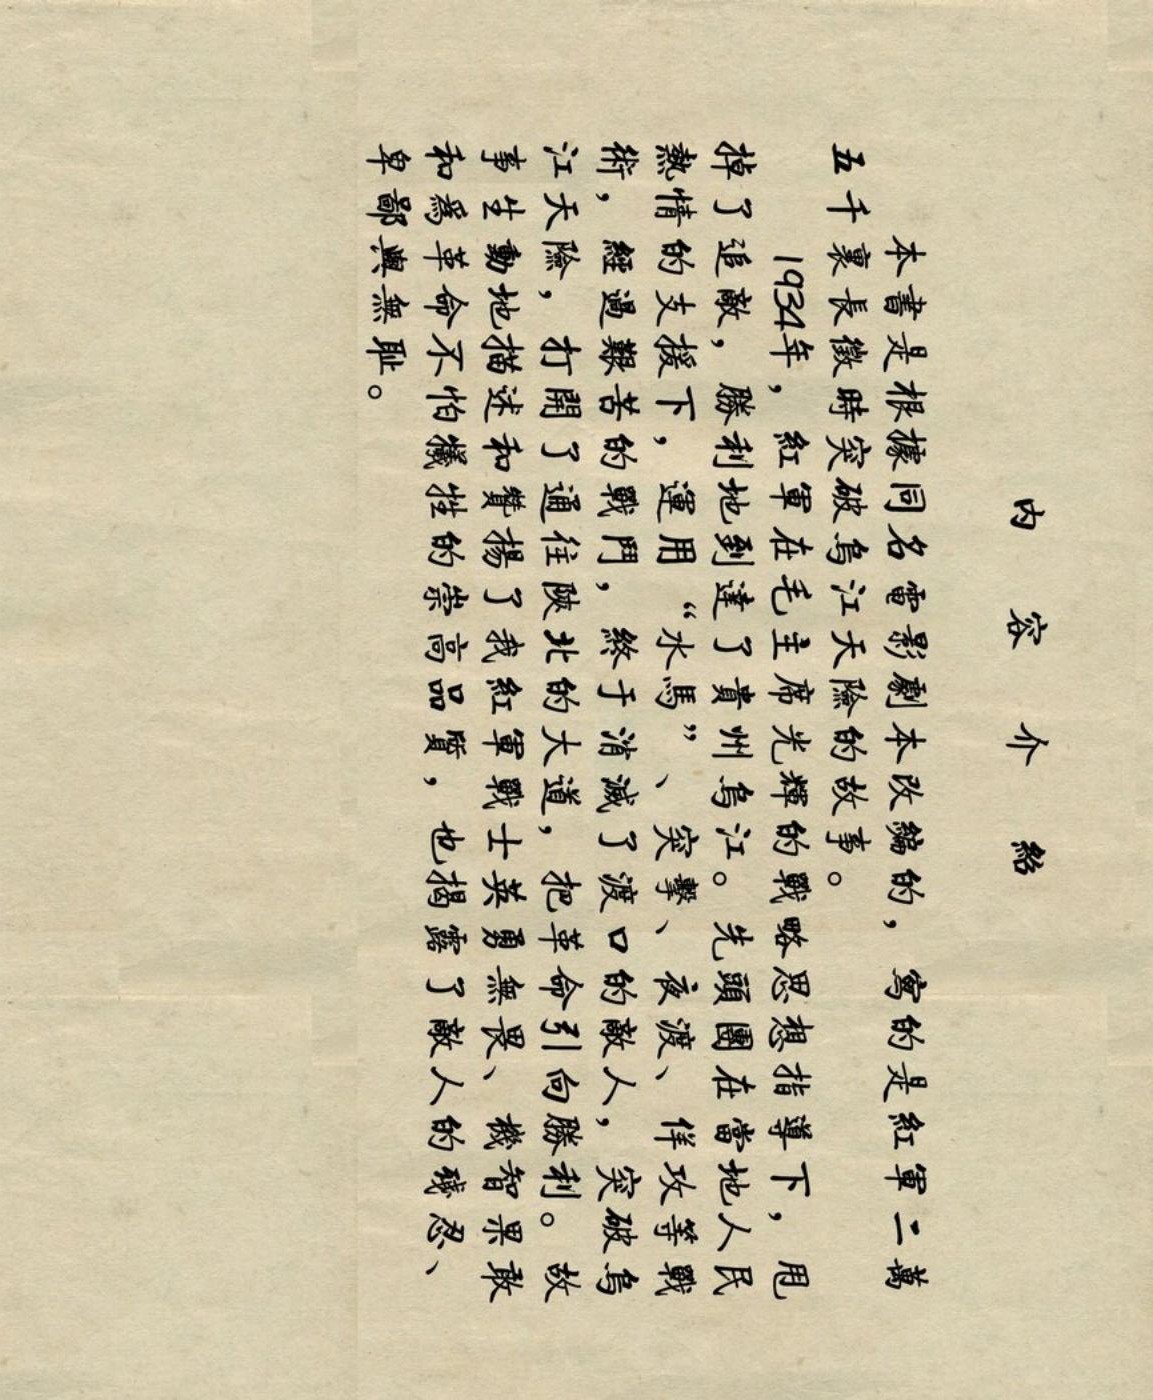 内容介紹
本書是根據同名電影劇本改編的，寫的是紅軍二萬
五千裏長徵時突破烏江天險的故事。
1934年，紅軍在毛主席光輝的戰略思想指導下，甩
掉了追敵，勝利地到達了貴州烏江。先頭團在當地人民
熱情的支援下，運用“水馬”、突擊、夜渡、佯攻等戰
術，經過艱苦的戰鬥，終于消滅了渡口的敵人，突破烏
江天險，打開了通往陝北的大道，把革命引向勝利。故
事生動地描述和贊揚了我紅軍戰士英勇無畏、機智果敢
和爲革命不怕犧牲的崇高品質，也揭露了敵人的殘忍、
卑鄙與無耻。